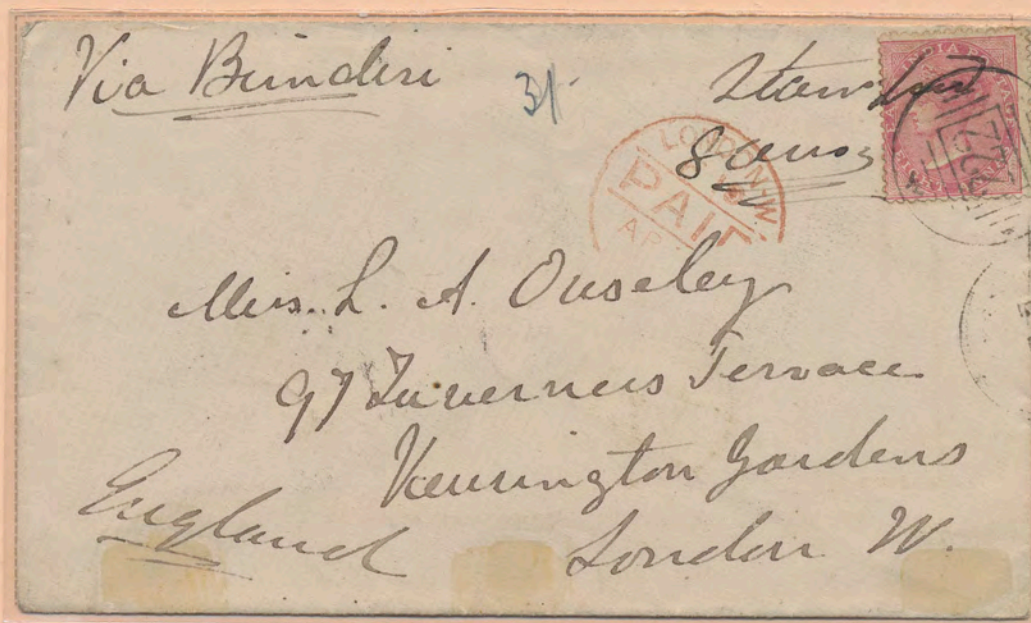 Via Brindisi
31
Stamped
8 annas
LONDON-W.
PAID
AP
INDIA
Miss. L. A. Ouseley
97 Inverness Terrace
Kensington Gardens
London W.
England